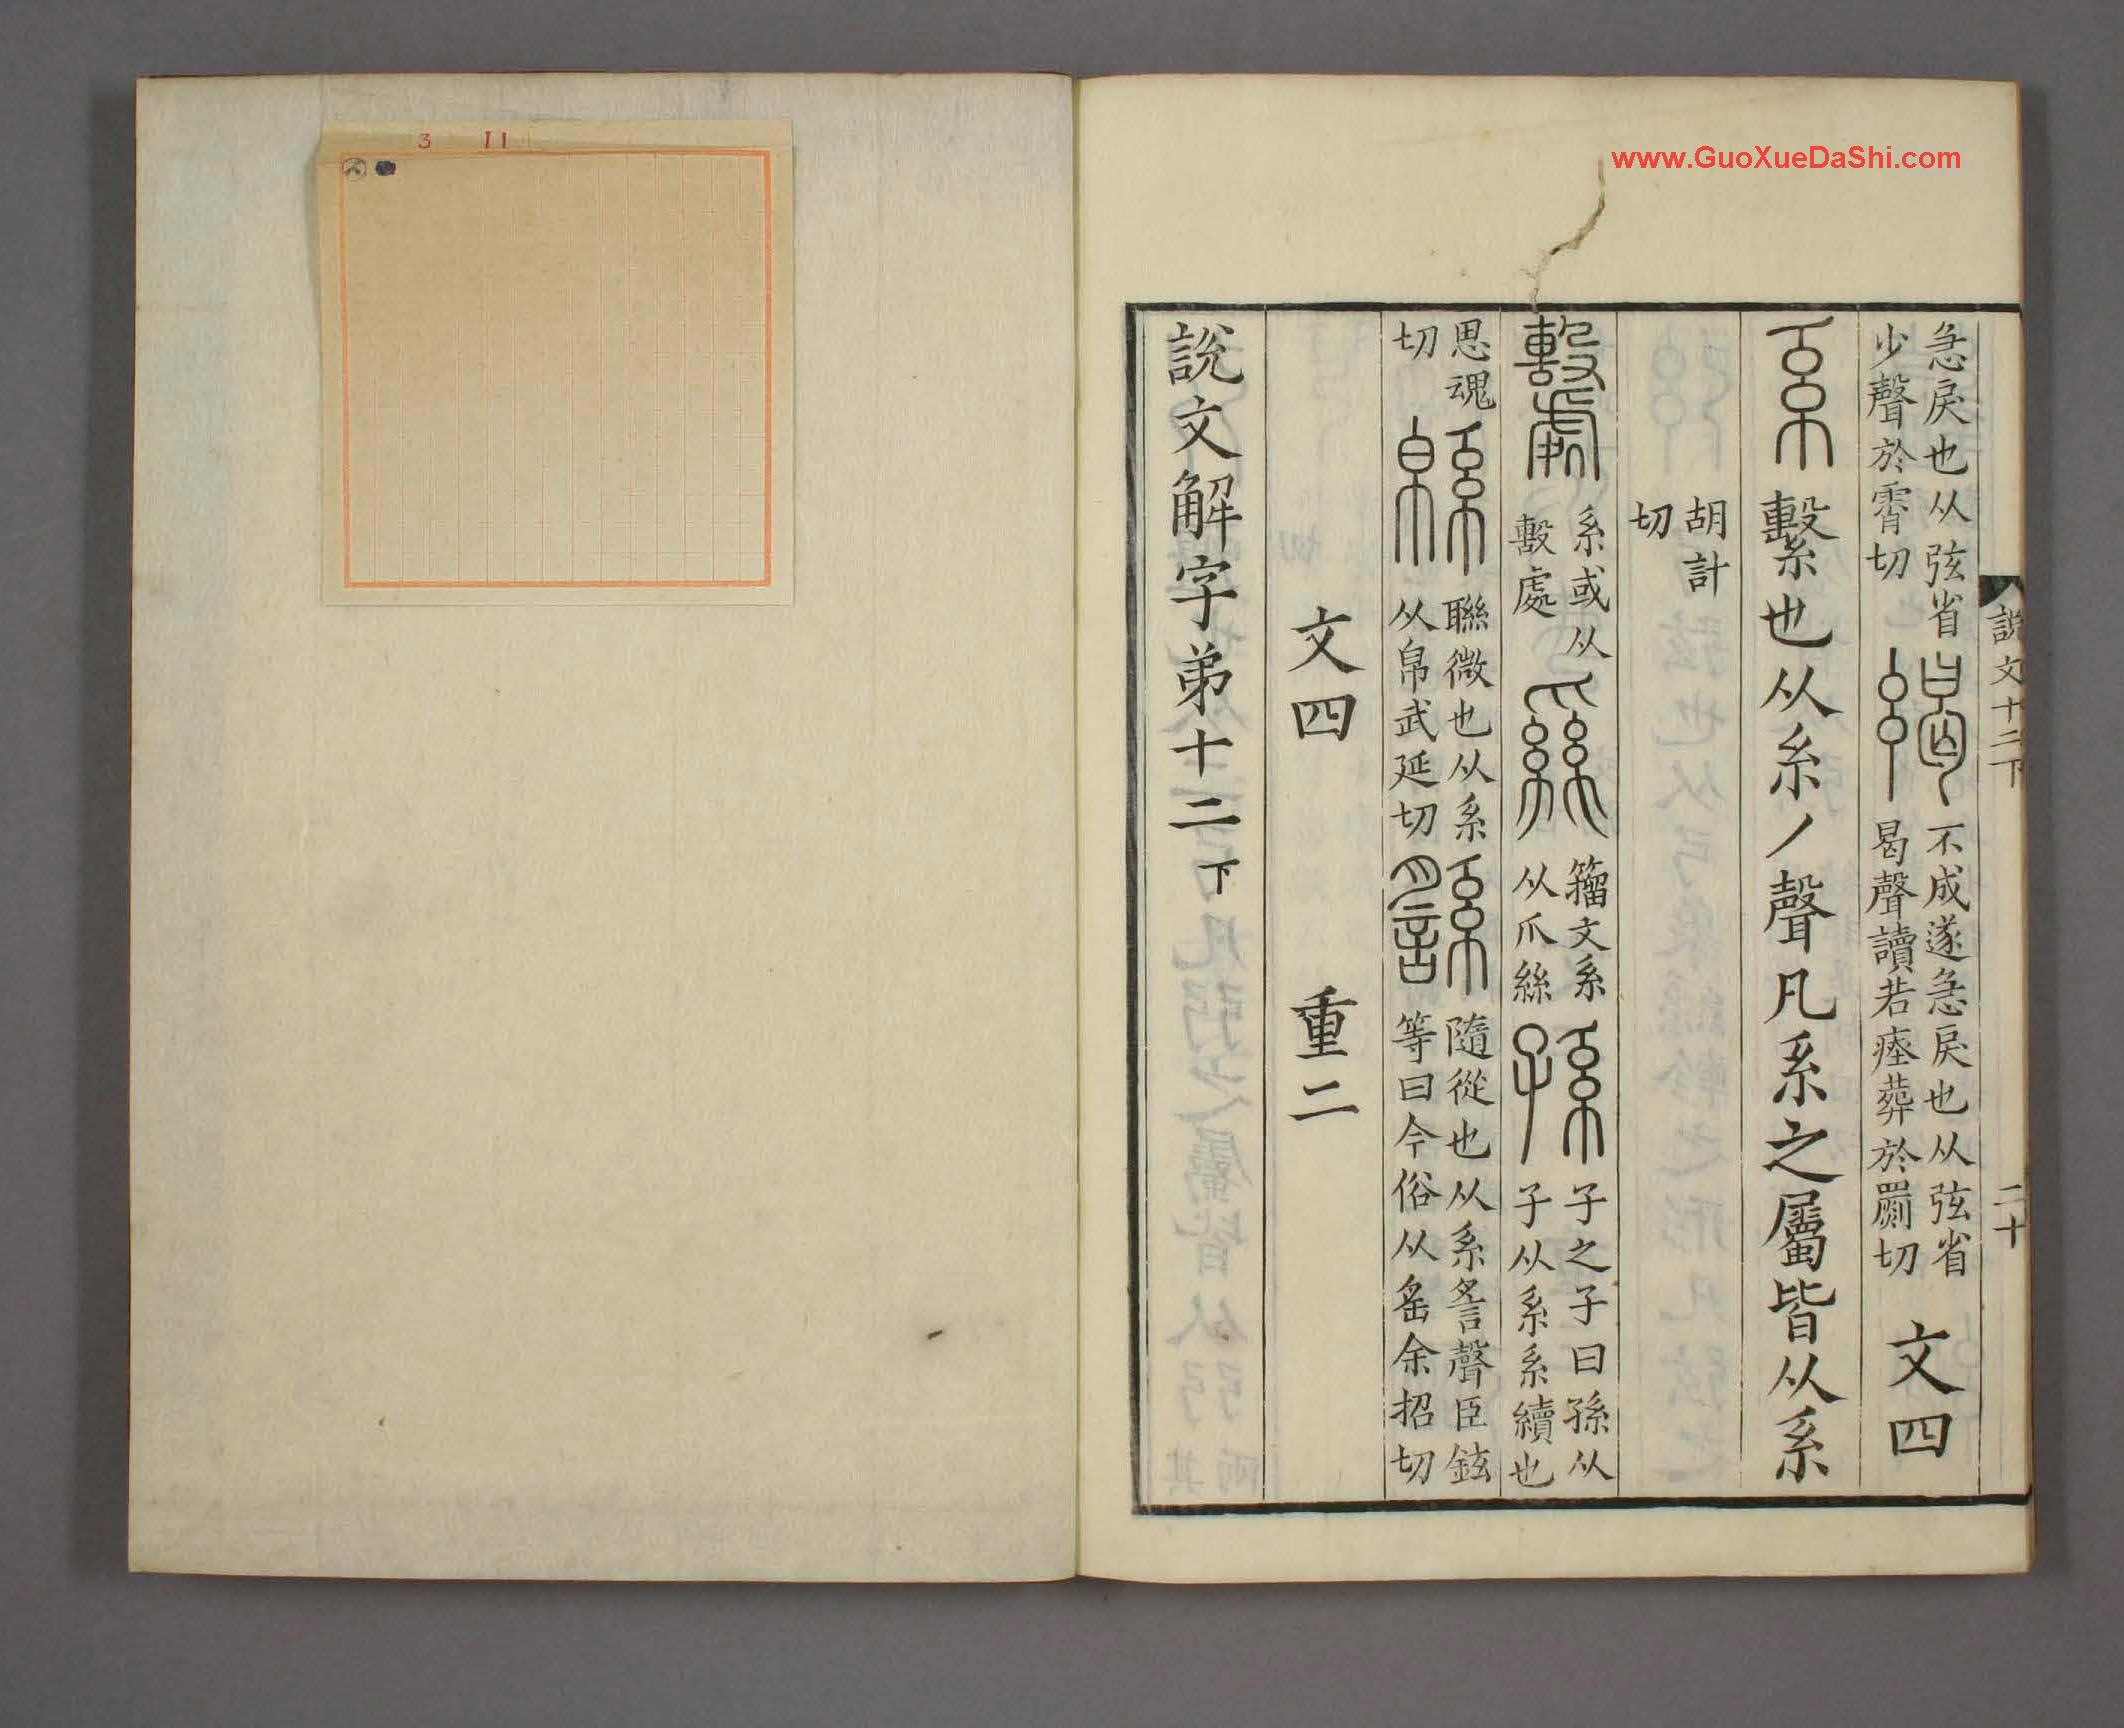 說文十二下 二十
急戾也从弦省少聲於霄切 不成遂急戾也从弦省曷聲讀若瘞葬於罽切 文四
系 繫也从糸丿聲凡系之屬皆从系
胡計切
系或从𣪠處 籀文系从爪絲 孫 子之子曰孫从子从系系續也
思魂切 緜 聯微也从系从帛武延切 繇 隨從也从系䚻聲臣鉉等曰今俗从䍃余招切
文四 重二
說文解字弟十二下
3 11
www.GuoXueDaShi.com